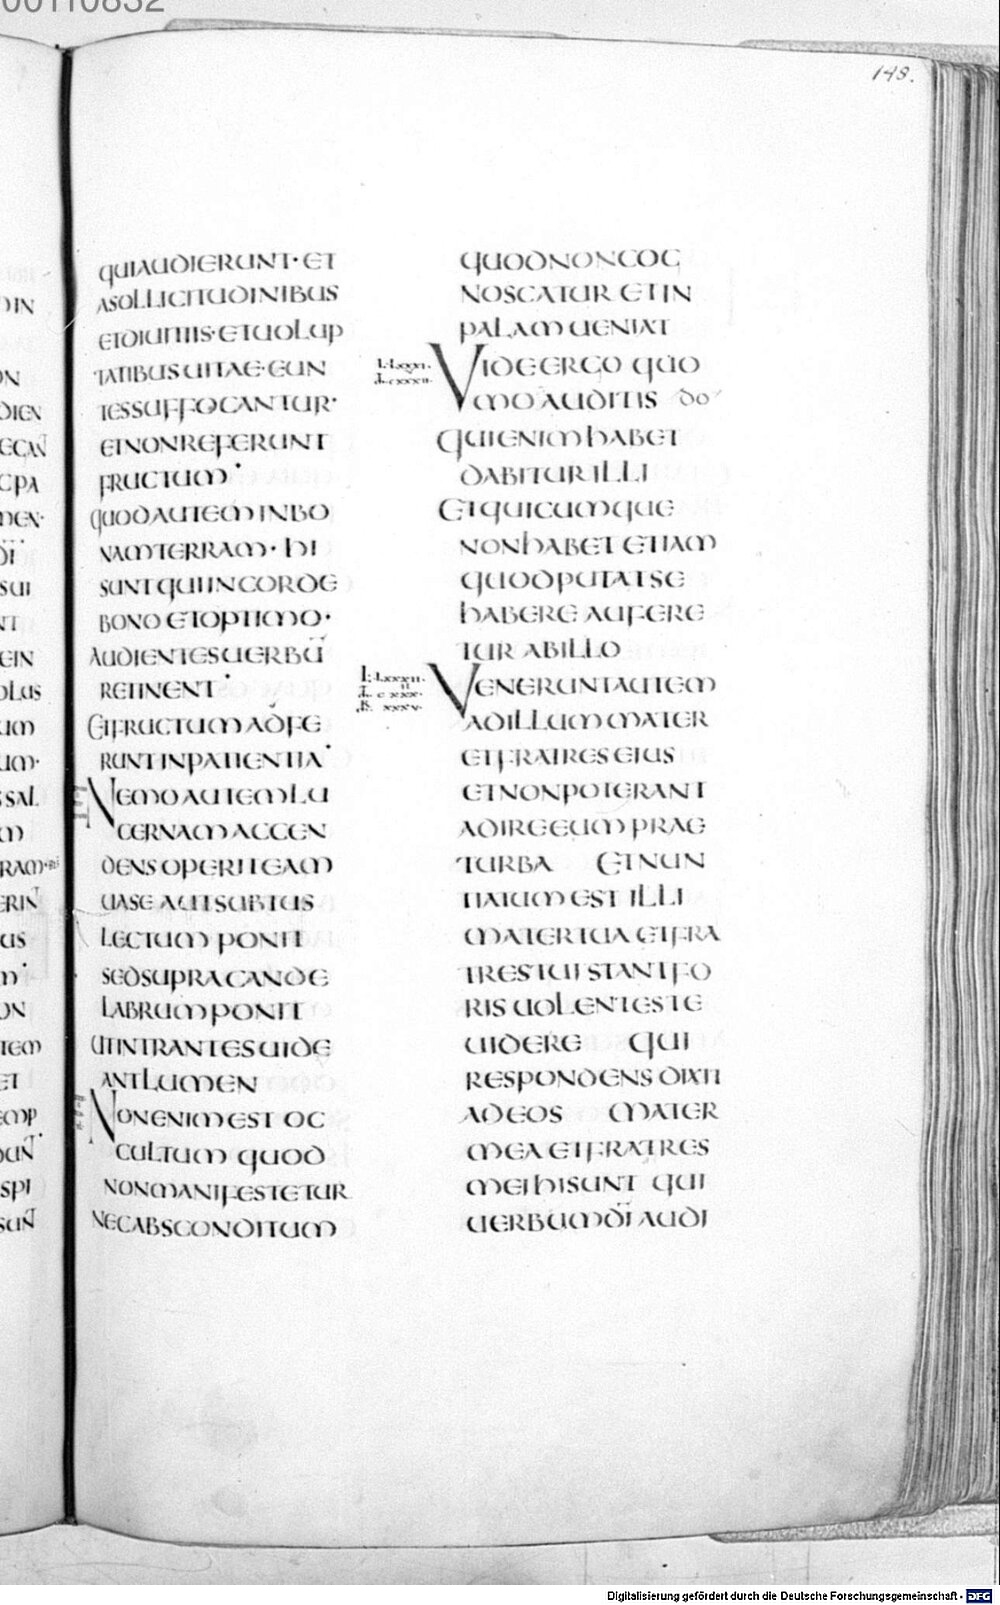 00110832
148.
QUIAUDIERUNT· ET
ASOLLICITUDINIBUS
ETDIUITIIS·ETUOLUP
TATIBUSUITAE·EUN
TESSUFFOCANTUR·
ETNONREFERUNT
FRUCTUM·
QUODAUTEMINBO
NAMTERRAM· HI
SUNTQUIINCORDE
BONO ETOPTIMO·
AUDIENTESUERBŪ
RETINENT·
ETFRUCTUMADFE
RUNTINPATIENTIA·
NEMOAUTEMLU
CERNAMACCEN
DENSOPERITEAM
UASE AUTSUBTUS
LECTUM PONIT
SEDSUPRACANDE
LABRUMPONIT
UTINTRANTESUIDE
ANTLUMEN
NONENIMEST OC
CULTUM QUOD
NONMANIFESTETUR
NECABSCONDITUM
QUODNONCOG
NOSCATUR ETIN
PALAM UENIAT
UIDEERGO QUO
MO AUDITIS do
QUIENIMHABET
DABITURILLI
ETQUICUMQUE
NONHABET ETIAM
QUODPUTATSE
HABERE AUFERE
TUR ABILLO
UENERUNTAUTEM
ADILLUMMATER
ETFRATRESEIUS
ETNONPOTERANT
ADIREEUMPRAE
TURBA ETNUN
TIATUMEST ILLI
MATERTUA ETFRA
TRESTUISTANTFO
RISUOLENTESTE
UIDERE QUI
RESPONDENSDIXIT
ADEOS MATER
MEAETFRATRES
MEIHISUNT QUI
UERBUMDI AUDI
Digitalisierung gefördert durch die Deutsche Forschungsgemeinschaft - DFG